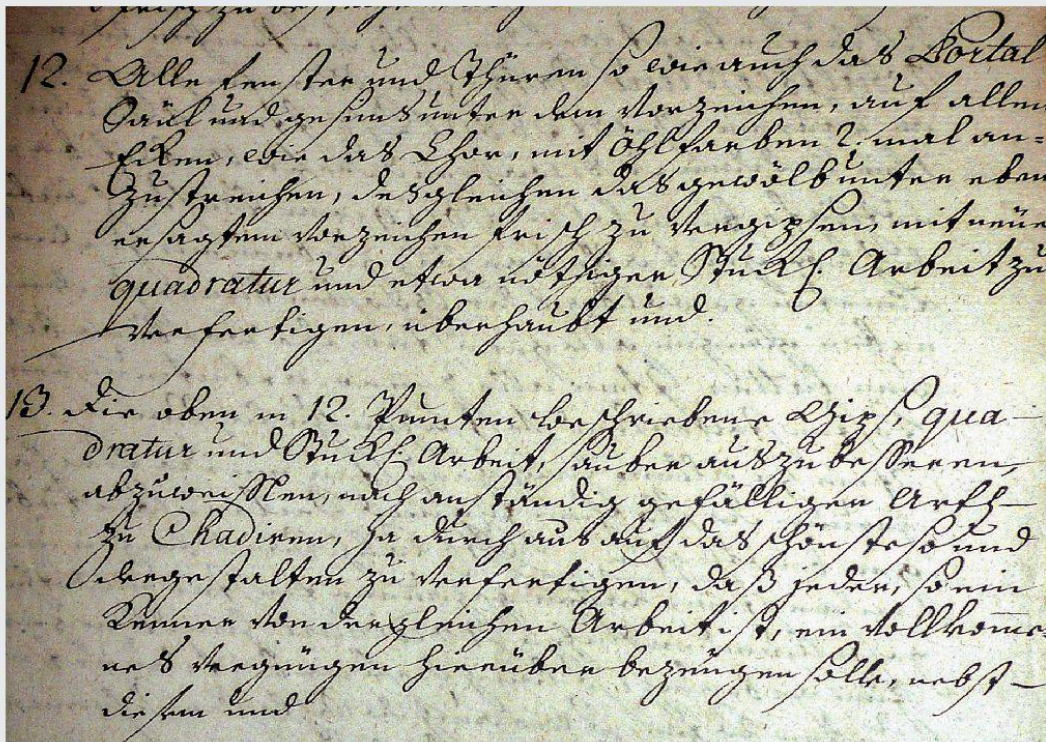 frisch zu
12. Alle fenster und Thüren so wie auch das Portal
Säul und gesims unter dem Vorzeichen, auf allen
Ecken, wie das Chor, mit Öhlfarben 2. mal an=
zustreichen, desgleichen das gewölb unter eben
ersagtem Vorzeichen frisch zu vergipsen, mit neüe
quadratur und etwa nöthiger Stuck. Arbeit zu
verfertigen, überhaubt und.
13. die oben in 12. Puncten beschriebene Gips, qua-
dratur und Stuck. Arbeit, sauber auszubesseren,
abzuweissen, nach anständig gefälliger Arth
zu Chadiren, ja durchaus auf das schönste so und
dergestalten zu verfertigen, daß jeder, so ein
Kenner von dergleichen Arbeit ist, ein vollkom̄e=
nes vergnügen hierüber bezeugen solle, nebst
diesem und